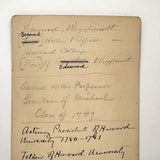 Edward Wigglesworth
Second Hollis Professor in
Harvard College
[Son] of Edward Wiggl
Second Hollis Professor
Class of 1749
Acting President of Harvard
University 1780-1781
Fellow of Harvard University